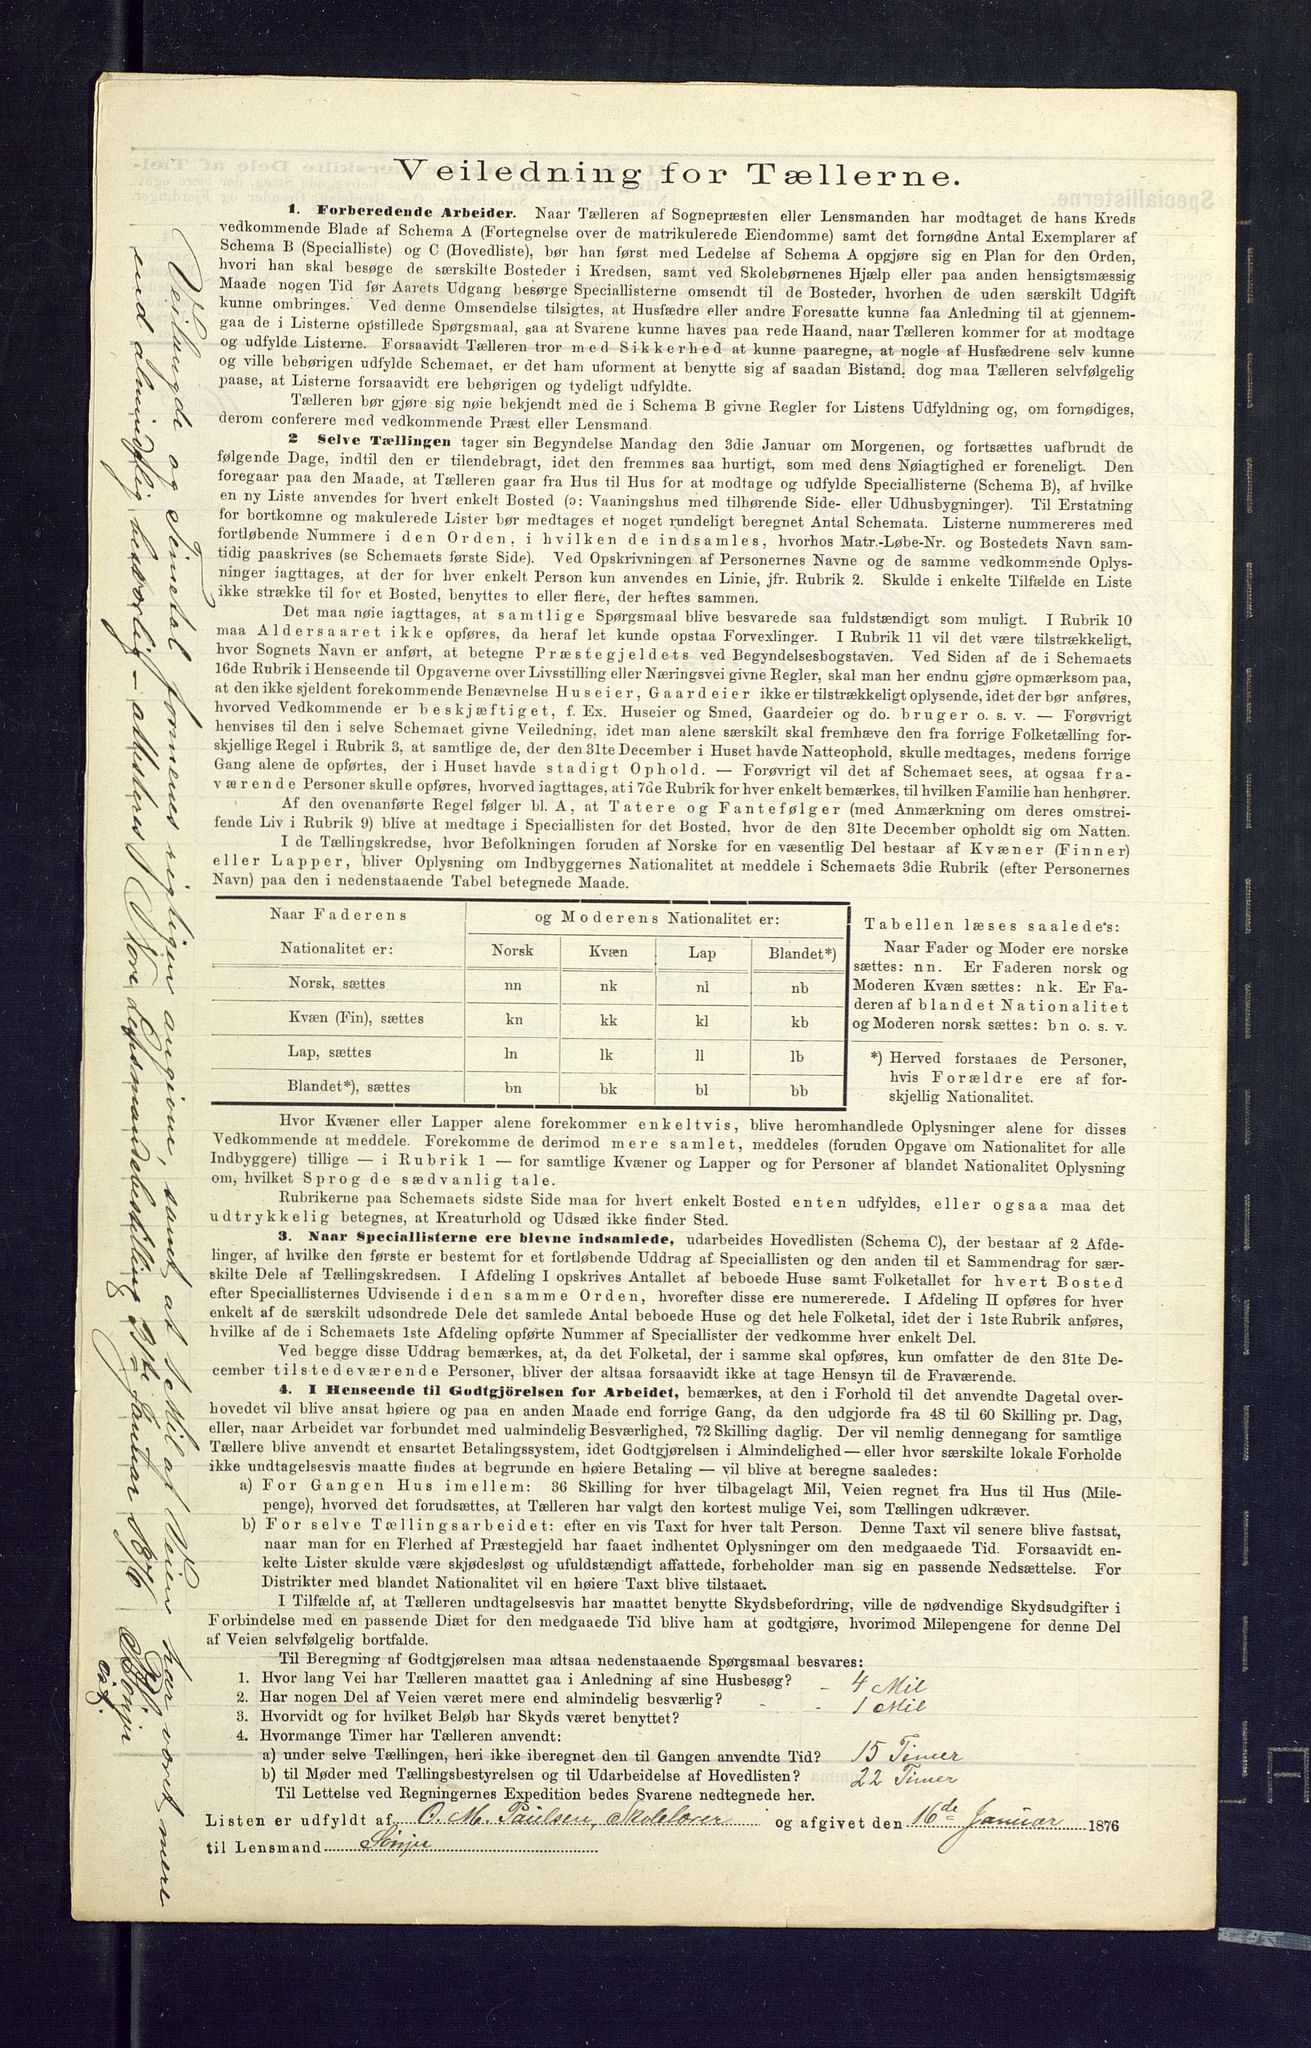 Veiledning for Tællerne.
1. Forberedende Arbeider. Naar Tælleren af Sognepræsten eller Lensmanden har modtaget de hans Kreds
vedkommende Blade af Schema A (Fortegnelse over de matrikulerede Eiendomme) samt det fornødne Antal Exemplarer af
Schema B (Specialliste) og C (Hovedliste), bør han først med Ledelse af Schema A opgjøre sig en Plan for den Orden,
hvori han skal besøge de særskilte Bosteder i Kredsen, samt ved Skolebørnenes Hjælp eller paa anden hensigtsmæssig
Maade nogen Tid før Aarets Udgang besørge Speciallisterne omsendt til de Bosteder, hvorhen de uden særskilt Udgift
kunne ombringes. Ved denne Omsendelse tilsigtes, at Husfædre eller andre Foresatte kunne faa Anledning til at gjennem-
gaa de i Listerne opstillede Spørgsmaal, saa at Svarene kunne haves paa rede Haand, naar Tælleren kommer for at modtage
og udfylde Listerne. Forsaavidt Tælleren tror med Sikkerhed at kunne paaregne, at nogle af Husfædrene selv kunne
og ville behørigen udfylde Schemaet, er det ham uforment at benytte sig af saadan Bistand, dog maa Tælleren selvfølgelig
paase, at Listerne forsaavidt ere behørigen og tydeligt udfyldte.
Tælleren bør gjøre sig nøie bekjendt med de i Schema B givne Regler for Listens Udfyldning og, om fornødiges,
derom conferere med vedkommende Præst eller Lensmand.
2 Selve Tællingen tager sin Begyndelse Mandag den 3die Januar om Morgenen, og fortsættes uafbrudt de
følgende Dage, indtil den er tilendebragt, idet den fremmes saa hurtigt, som med dens Nøiagtighed er foreneligt. Den
foregaar paa den Maade, at Tælleren gaar fra Hus til Hus for at modtage og udfylde Speciallisterne (Schema B), af hvilke
en ny Liste anvendes for hvert enkelt Bosted (ɔ: Vaaningshus med tilhørende Side- eller Udhusbygninger). Til Erstatning
for bortkomne og makulerede Lister bør medtages et noget rundeligt beregnet Antal Schemata. Listerne nummereres med
fortløbende Nummere i den Orden, i hvilken de indsamles, hvorhos Matr.-Løbe-Nr. og Bostedets Navn sam-
tidig paaskrives (se Schemaets første Side). Ved Opskrivningen af Personernes Navne og de samme vedkommende Oplys-
ninger iagttages, at der for hver enkelt Person kun anvendes en Linie, jfr. Rubrik 2. Skulde i enkelte Tilfælde en Liste
ikke strække til for et Bosted, benyttes to eller flere, der heftes sammen.
Det maa nøie iagttages, at samtlige Spørgsmaal blive besvarede saa fuldstændigt som muligt. I Rubrik 10
maa Aldersaaret ikke opføres, da heraf let kunde opstaa Forvexlinger. I Rubrik 11 vil det være tilstrækkeligt,
hvor Sognets Navn er anført, at betegne Præstegjeldets ved Begyndelsesbogstaven. Ved Siden af de i Schemaets
16de Rubrik i Henseende til Opgaverne over Livsstilling eller Næringsvei givne Regler, skal man her endnu gjøre opmærksom paa,
at den ikke sjeldent forekommende Benævnelse Huseier, Gaardeier ikke er tilstrækkeligt oplysende, idet der bør anføres,
hvorved Vedkommende er beskjæftiget, f. Ex. Huseier og Smed, Gaardeier og do. bruger o. s. v. — Forøvrigt
henvises til den i selve Schemaet givne Veiledning, idet man alene særskilt skal fremhæve den fra forrige Folketælling for-
skjellige Regel i Rubrik 3, at samtlige de, der den 31te December i Huset havde Natteophold, skulle medtages, medens forrige
Gang alene de opførtes, der i Huset havde stadigt Ophold. — Forøvrigt vil det af Schemaet sees, at ogsaa fra-
værende Personer skulle opføres, hvorved iagttages, at i 7de Rubrik for hver enkelt bemærkes, til hvilken Familie han henhører.
Af den ovenanførte Regel følger bl. A, at Tatere og Fantefølger (med Anmærkning om deres omstrei-
fende Liv i Rubrik 9) blive at medtage i Speciallisten for det Bosted, hvor de den 31te December opholdt sig om Natten.
I de Tællingskredse, hvor Befolkningen foruden af Norske for en væsentlig Del bestaar af Kvæner (Finner)
eller Lapper, bliver Oplysning om Indbyggernes Nationalitet at meddele i Schemaets 3die Rubrik (efter Personernes
Navn) paa den i nedenstaaende Tabel betegnede Maade.
Naar Faderens og Moderens Nationalitet er:
Nationalitet er: Norsk Kvæn Lap Blandet*)
Norsk, sættes nn nk nl nb
Kvæn (Fin), sættes kn kk kl kb
Lap, sættes ln lk ll lb
Blandet*), sættes bn bk bl bb
Tabellen læses saaledes:
Naar Fader og Moder ere norske
sættes: nn. Er Faderen norsk og
Moderen Kvæn sættes: nk. Er Fa-
deren af blandet Nationalitet
og Moderen norsk sættes: bn o. s. v.
*) Herved forstaaes de Personer,
hvis Forældre ere af for-
skjellig Nationalitet.
Hvor Kvæner eller Lapper alene forekommer enkeltvis, blive heromhandlede Oplysninger alene for disses
Vedkommende at meddele. Forekomme de derimod mere samlet, meddeles (foruden Opgave om Nationalitet for alle
Indbyggere) tillige — i Rubrik 1 — for samtlige Kvæner og Lapper og for Personer af blandet Nationalitet Oplysning
om, hvilket Sprog de sædvanlig tale.
Rubrikerne paa Schemaets sidste Side maa for hvert enkelt Bosted enten udfyldes, eller ogsaa maa det
udtrykkelig betegnes, at Kreaturhold og Udsæd ikke finder Sted.
3. Naar Speciallisterne ere blevne indsamlede, udarbeides Hovedlisten (Schema C), der bestaar af 2 Afde-
linger, af hvilke den første er bestemt for et fortløbende Uddrag af Speciallisten og den anden til et Sammendrag for sær-
skilte Dele af Tællingskredsen. I Afdeling I opskrives Antallet af beboede Huse samt Folketallet for hvert Bosted
efter Speciallisternes Udvisende i den samme Orden, hvorefter disse ere numererede. I Afdeling II opføres for hver
enkelt af de særskilt udsondrede Dele det samlede Antal beboede Huse og det hele Folketal, idet der i 1ste Rubrik anføres,
hvilke af de i Schemaets 1ste Afdeling opførte Nummer af Speciallister der vedkomme hver enkelt Del.
Ved begge disse Uddrag bemærkes, at, da det Folketal, der i samme skal opføres, kun omfatter de den 31te De-
cember tilstedeværende Personer, bliver der altsaa forsaavidt ikke at tage Hensyn til de Fraværende.
4. I Henseende til Godtgjörelsen for Arbeidet, bemærkes, at den i Forhold til det anvendte Dagetal over-
hovedet vil blive ansat høiere og paa en anden Maade end forrige Gang, da den udgjorde fra 48 til 60 Skilling pr. Dag,
eller, naar Arbeidet var forbundet med ualmindelig Besværlighed, 72 Skilling daglig. Der vil nemlig dennegang for samtlige
Tællere blive anvendt et ensartet Betalingssystem, idet Godtgjørelsen i Almindelighed — eller hvor særskilte lokale Forholde
ikke undtagelsesvis maatte findes at begrunde en høiere Betaling — vil blive at beregne saaledes:
a) For Gangen Hus imellem: 36 Skilling for hver tilbagelagt Mil, Veien regnet fra Hus til Hus (Mile-
penge), hvorved det forudsættes, at Tælleren har valgt den kortest mulige Vei, som Tællingen udkræver.
b) For selve Tællingsarbeidet: efter en vis Taxt for hver talt Person. Denne Taxt vil senere blive fastsat,
naar man for en Flerhed af Præstegjeld har faaet indhentet Oplysninger om den medgaaede Tid. Forsaavidt en-
kelte Lister skulde være skjødesløst og ufuldstændigt affattede, forbeholder man sig en passende Nedsættelse. For
Distrikter med blandet Nationalitet vil en høiere Taxt blive tilstaaet.
I Tilfælde af, at Tælleren undtagelsesvis har maattet benytte Skydsbefordring, ville de nødvendige Skydsudgifter i
Forbindelse med en passende Diæt for den medgaaede Tid blive ham at godtgjøre, hvorimod Milepengene for denne Del
af Veien selvfølgelig bortfalde.
Til Beregning af Godtgjørelsen maa altsaa nedenstaaende Spørgsmaal besvares:
1. Hvor lang Vei har Tælleren maattet gaa i Anledning af sine Husbesøg? 4 Mil
2. Har nogen Del af Veien været mere end almindelig besværlig? 1 Mil
3. Horvidt og for hvilket Beløb har Skyds været benyttet?
4. Hvormange Timer har Tælleren anvendt:
a) under selve Tællingen, heri ikke iberegnet den til Gangen anvendte Tid? 15 Timer
b) til Møder med Tællingsbestyrelsen og til Udarbeidelse af Hovedlisten? 22 Timer
Til Lettelse ved Regningernes Expedition bedes Svarene nedtegnede her.
Listen er udfyldt af O. M. Paulsen, Skolelærer og afgivet den 16de Januar 1876
til Lensmand Sönju
Veilængde og Timetal formenes rigtigen angivne, samt at 1 Mil af Veien har været mere
end almindelig besværlig – attesteres
Nore Lensmandsbestilling 31te Januar 1876